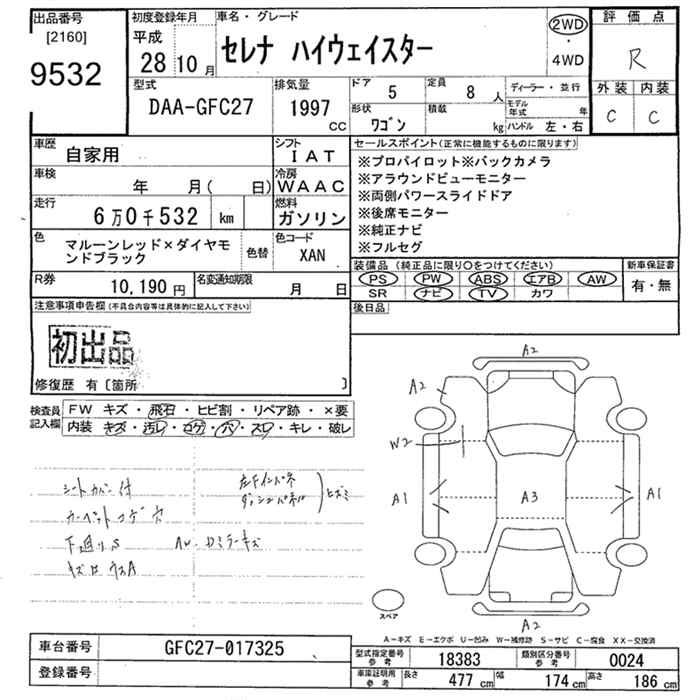 出品番号
[2160]
9532
初度登録年月
平成
28年10月
車名・グレード
セレナ ハイウェイスター
2WD
・
4WD
評価点
R
型式
DAA-GFC27
排気量
1997
CC
ドア
5
定員
8人
形状
ワゴン
積載
kg
ディーラー・並行
モデル年式 年
ハンドル 左・右
外装 内装
C C
車歴
自家用
シフト
IAT
車検
年 月( 日)
冷房
WAAC
走行
6万0千532 km
燃料
ガソリン
色
マルーンレッド×ダイヤモ
ンドブラック
色替
色コード
XAN
R券
10,190円
名変通知期限
月 日
セールスポイント(正常に機能するものに限ります)
※プロパイロット※バックカメラ
※アラウンドビューモニター
※両側パワースライドドア
※後席モニター
※純正ナビ
※フルセグ
装備品(純正品に限り○をつけてください)
PS PW ABS エアB AW
SR ナビ TV カワ
新車保証書
有・無
後日品
注意事項申告欄(不具合内容等は具体的に記入して下さい)
初出品
修復歴 有〔箇所 〕
検査員
記入欄
FW キズ・飛石・ヒビ割・リペア跡・×要
内装 キズ・汚レ・コゲ・穴・スレ・キレ・破レ
シートカバー付
カーペットコゲ穴
下廻りS
左Fインパネ
ダッシュパネル
A2
A2
W2
A1
A3
A1
A2
スペア
A-キズ E-エクボ U-凹み W-補修跡 S-サビ C-腐食 XX-交換済
車台番号
GFC27-017325
登録番号
型式指定番号
参考
18383
類別区分番号
参考
0024
車庫証明用
参考
長さ 477cm 幅 174cm 高さ 186cm